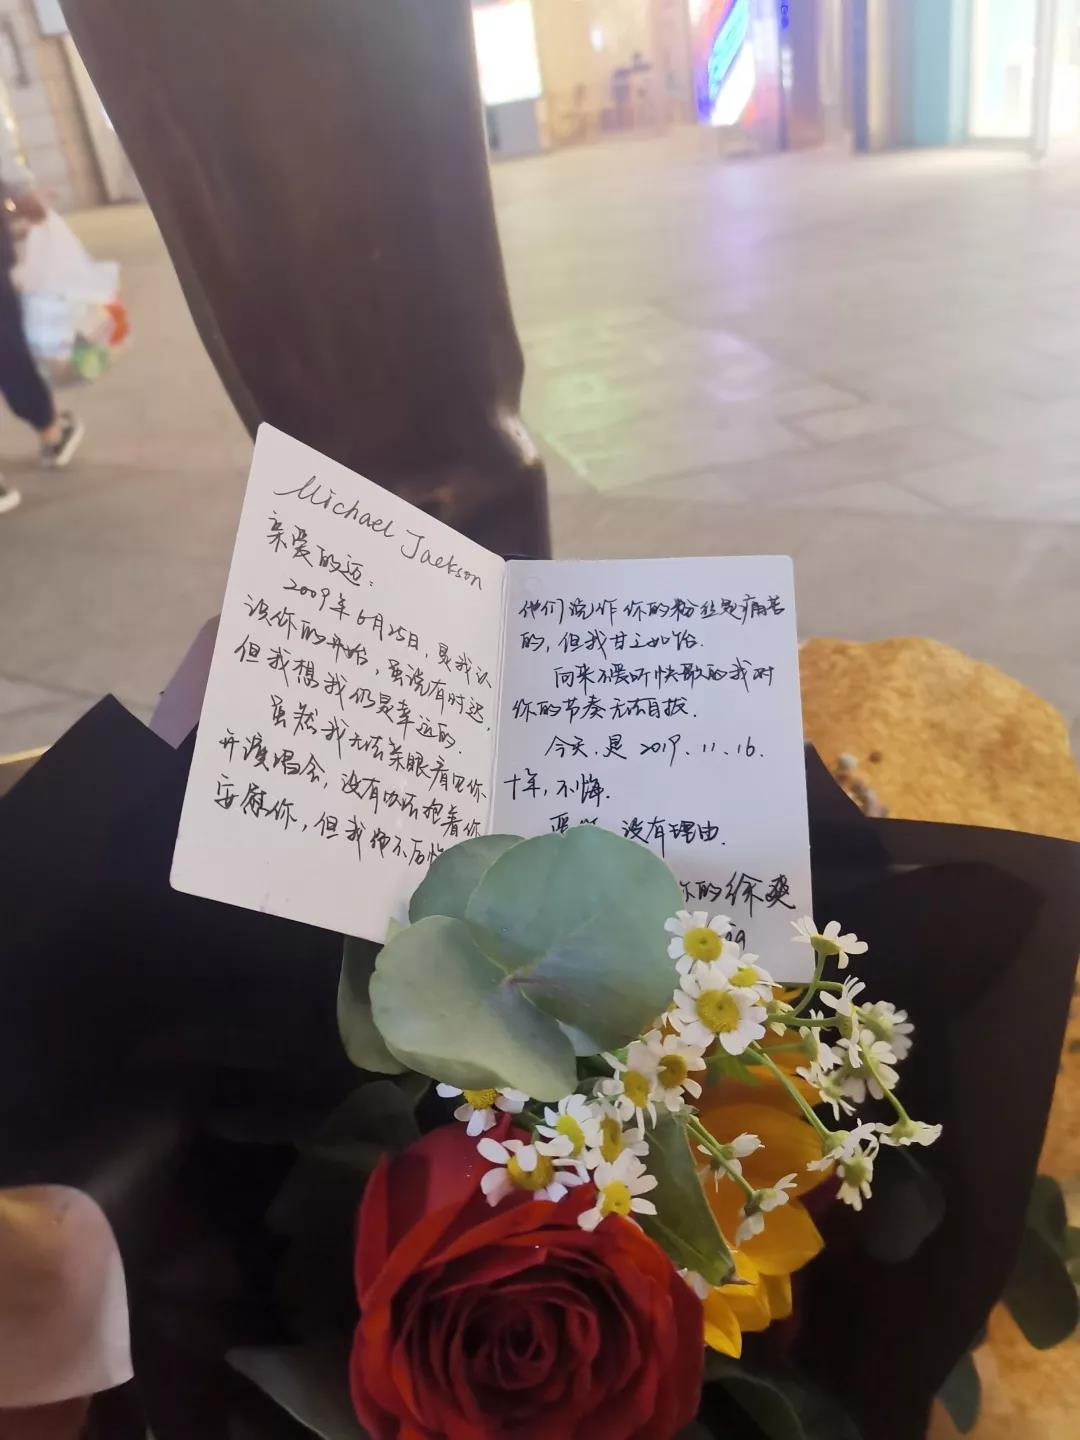 Michael Jackson
亲爱的迈：
2009年6月25日，是我认
识你的开始，虽说有时迟，
但我想我仍是幸运的．
虽然我无法亲眼看见你
开演唱会，没有办法抱着你
安慰你，但我绝不后悔
他们说作你的粉丝是痛苦
的，但我甘之如饴．
向来不爱听快歌的我对
你的节奏无法自拔．
今天，是 2019．11．16．
十年，不悔．
没有理由．
你的徐爽